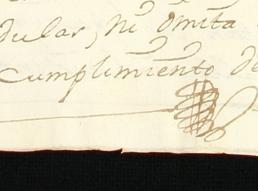 dular, ni omita
cumplimiento de